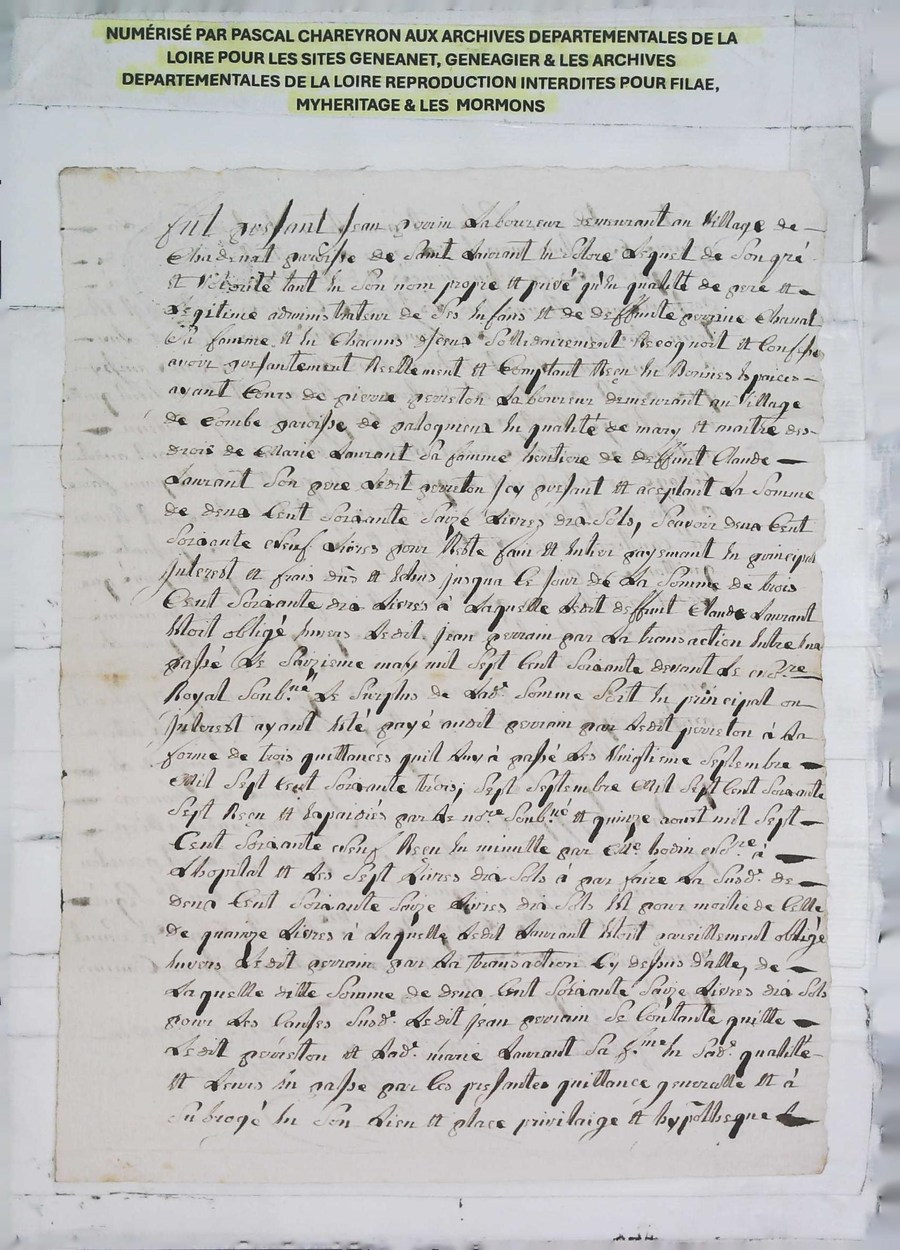 NUMÉRISÉ PAR PASCAL CHAREYRON AUX ARCHIVES DEPARTEMENTALES DE LA
LOIRE POUR LES SITES GENEANET, GENEAGIER & LES ARCHIVES
DEPARTEMENTALES DE LA LOIRE REPRODUCTION INTERDITES POUR FILAE,
MYHERITAGE & LES MORMONS
fut present Jean perrin Laboureur demeurant au Village de
paroisse de Saint Laurant Lequel de Son gré
et Volonté tant en Son nom propre et privé qu'en qualité de pere et
Legitime administrateur de Ses enfans et de deffunte perrine
Sa famme et en Chacuns d'eux Sollidairement Recognoit et Confesse
avoir presantement Reellement et Comptant Reçu en Bonnes Espaices
ayant Cours de pierre perreton Laboureur demeurant au Village
de Combe paroisse de palogneux en qualité de mary et maitre des
drois de Marie Laurant Sa famme heritiere de deffunt Claude
Laurant Son pere Ledit perreton Icy presant et aceptant La Somme
de deux Cent Soixante Saize Livres dix Sols, Scavoir deux Cent
Soixante Neuf Livres pour Reste fain et entier payement en principal
Interest et frais dûs et echus jusqua Ce jour de La Somme de trois
Cent Soixante dix Livres à Laquelle Ledit deffunt Claude Laurant
etoit obligé envers Ledit Jean perrain par La transaction entre eux
passé Le Saizieme may mil Sept Cent Soixante devant Le no.re
Royal Soub.né Le Surplus de Lad.e Somme Soit en principal ou
Interest ayant eté payé audit perrain par Ledit perreton à La
forme de trois quittances quil Luy à passé Les Vingtieme Septembre
Mil Sept Cent Soixante trois, Sept Septembre Mil Sept Cent Soixante
Sept Reçu et Expediés par Le no.re Soub.né et quinze aoust mil Sept
Cent Soixante Neuf Reçu en minutte par M.e bodin No.re à
Lhopital et Les Sept Livres dix Sols à par faire La Susd.e de
deux Cent Soixante Saize Livres dix Sols Et pour moitié de Celle
de quainze Livres à Laquelle Ledit Laurant etoit pareillement obligé
envers Ledit perrain par La transaction Cy dessus d'atte, de
Laquelle ditte Somme de deux Cent Soixante Saize Livres dix Sols
pour Les Causes Susd.e Ledit Jean perrain Se Contante quitte
Ledit perreton et Lad.e marie Laurant Sa f.me en Sad.e qualité
et Leurs en passe par Ces presantes quittance generalle et à
Subrogé en Son Lieu et place privilaige et hypotheque